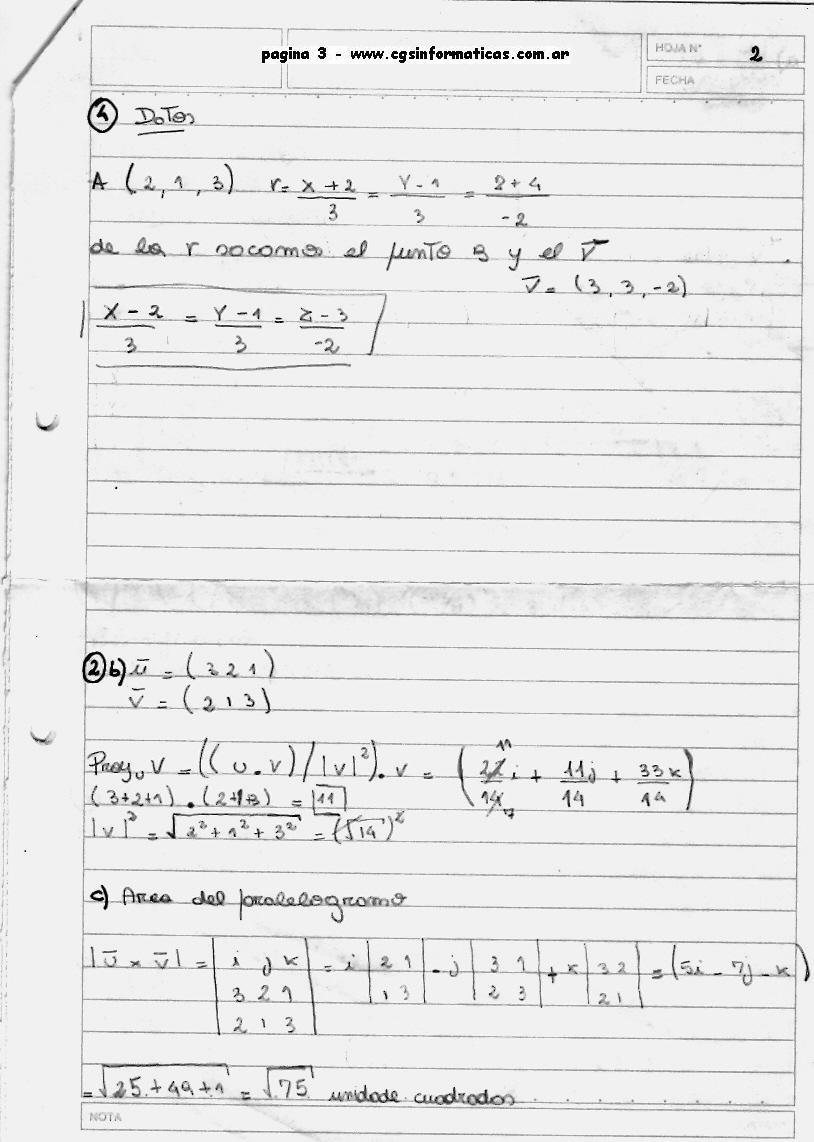 pagina 3 - www.cgsinformaticas.com.ar
HOJA N° 2
FECHA
④ Datos
A (2, 1, 3) r = (X+2)/3 = (Y-1)/3 = (Z+4)/-2
de la r sacamos el punto B y el V⃗
V⃗ = (3, 3, -2)
(X-2)/3 = (Y-1)/3 = (Z-3)/-2
② b) ū = (3 2 1)
v̄ = (2 1 3)
Proy_u V = ((u . v) / |v|²) . v = (22/14 i + 11j/14 + 33k/14) 11 7
(3+2+1) . (2+1+3) = 11
|v|² = √(2² + 1² + 3²) = (√14)²
c) Area del paralelogramo
|ū × v̄| = | i j k | = i | 2 1 | - j | 3 1 | + k | 3 2 | = (5i - 7j - k)
| 3 2 1 | | 1 3 | | 2 3 | | 2 1 |
| 2 1 3 |
= √(25 + 49 + 1) = √75 unidade cuadrados
NOTA